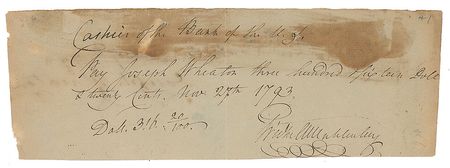 Cashier of the Bank of the U. S.
Pay Joseph Wheaton three hundred & sixteen Doll
& twenty Cents. Nov 27th 1793
Doll. 316. 20/100.
Fredk A Muhlenberg